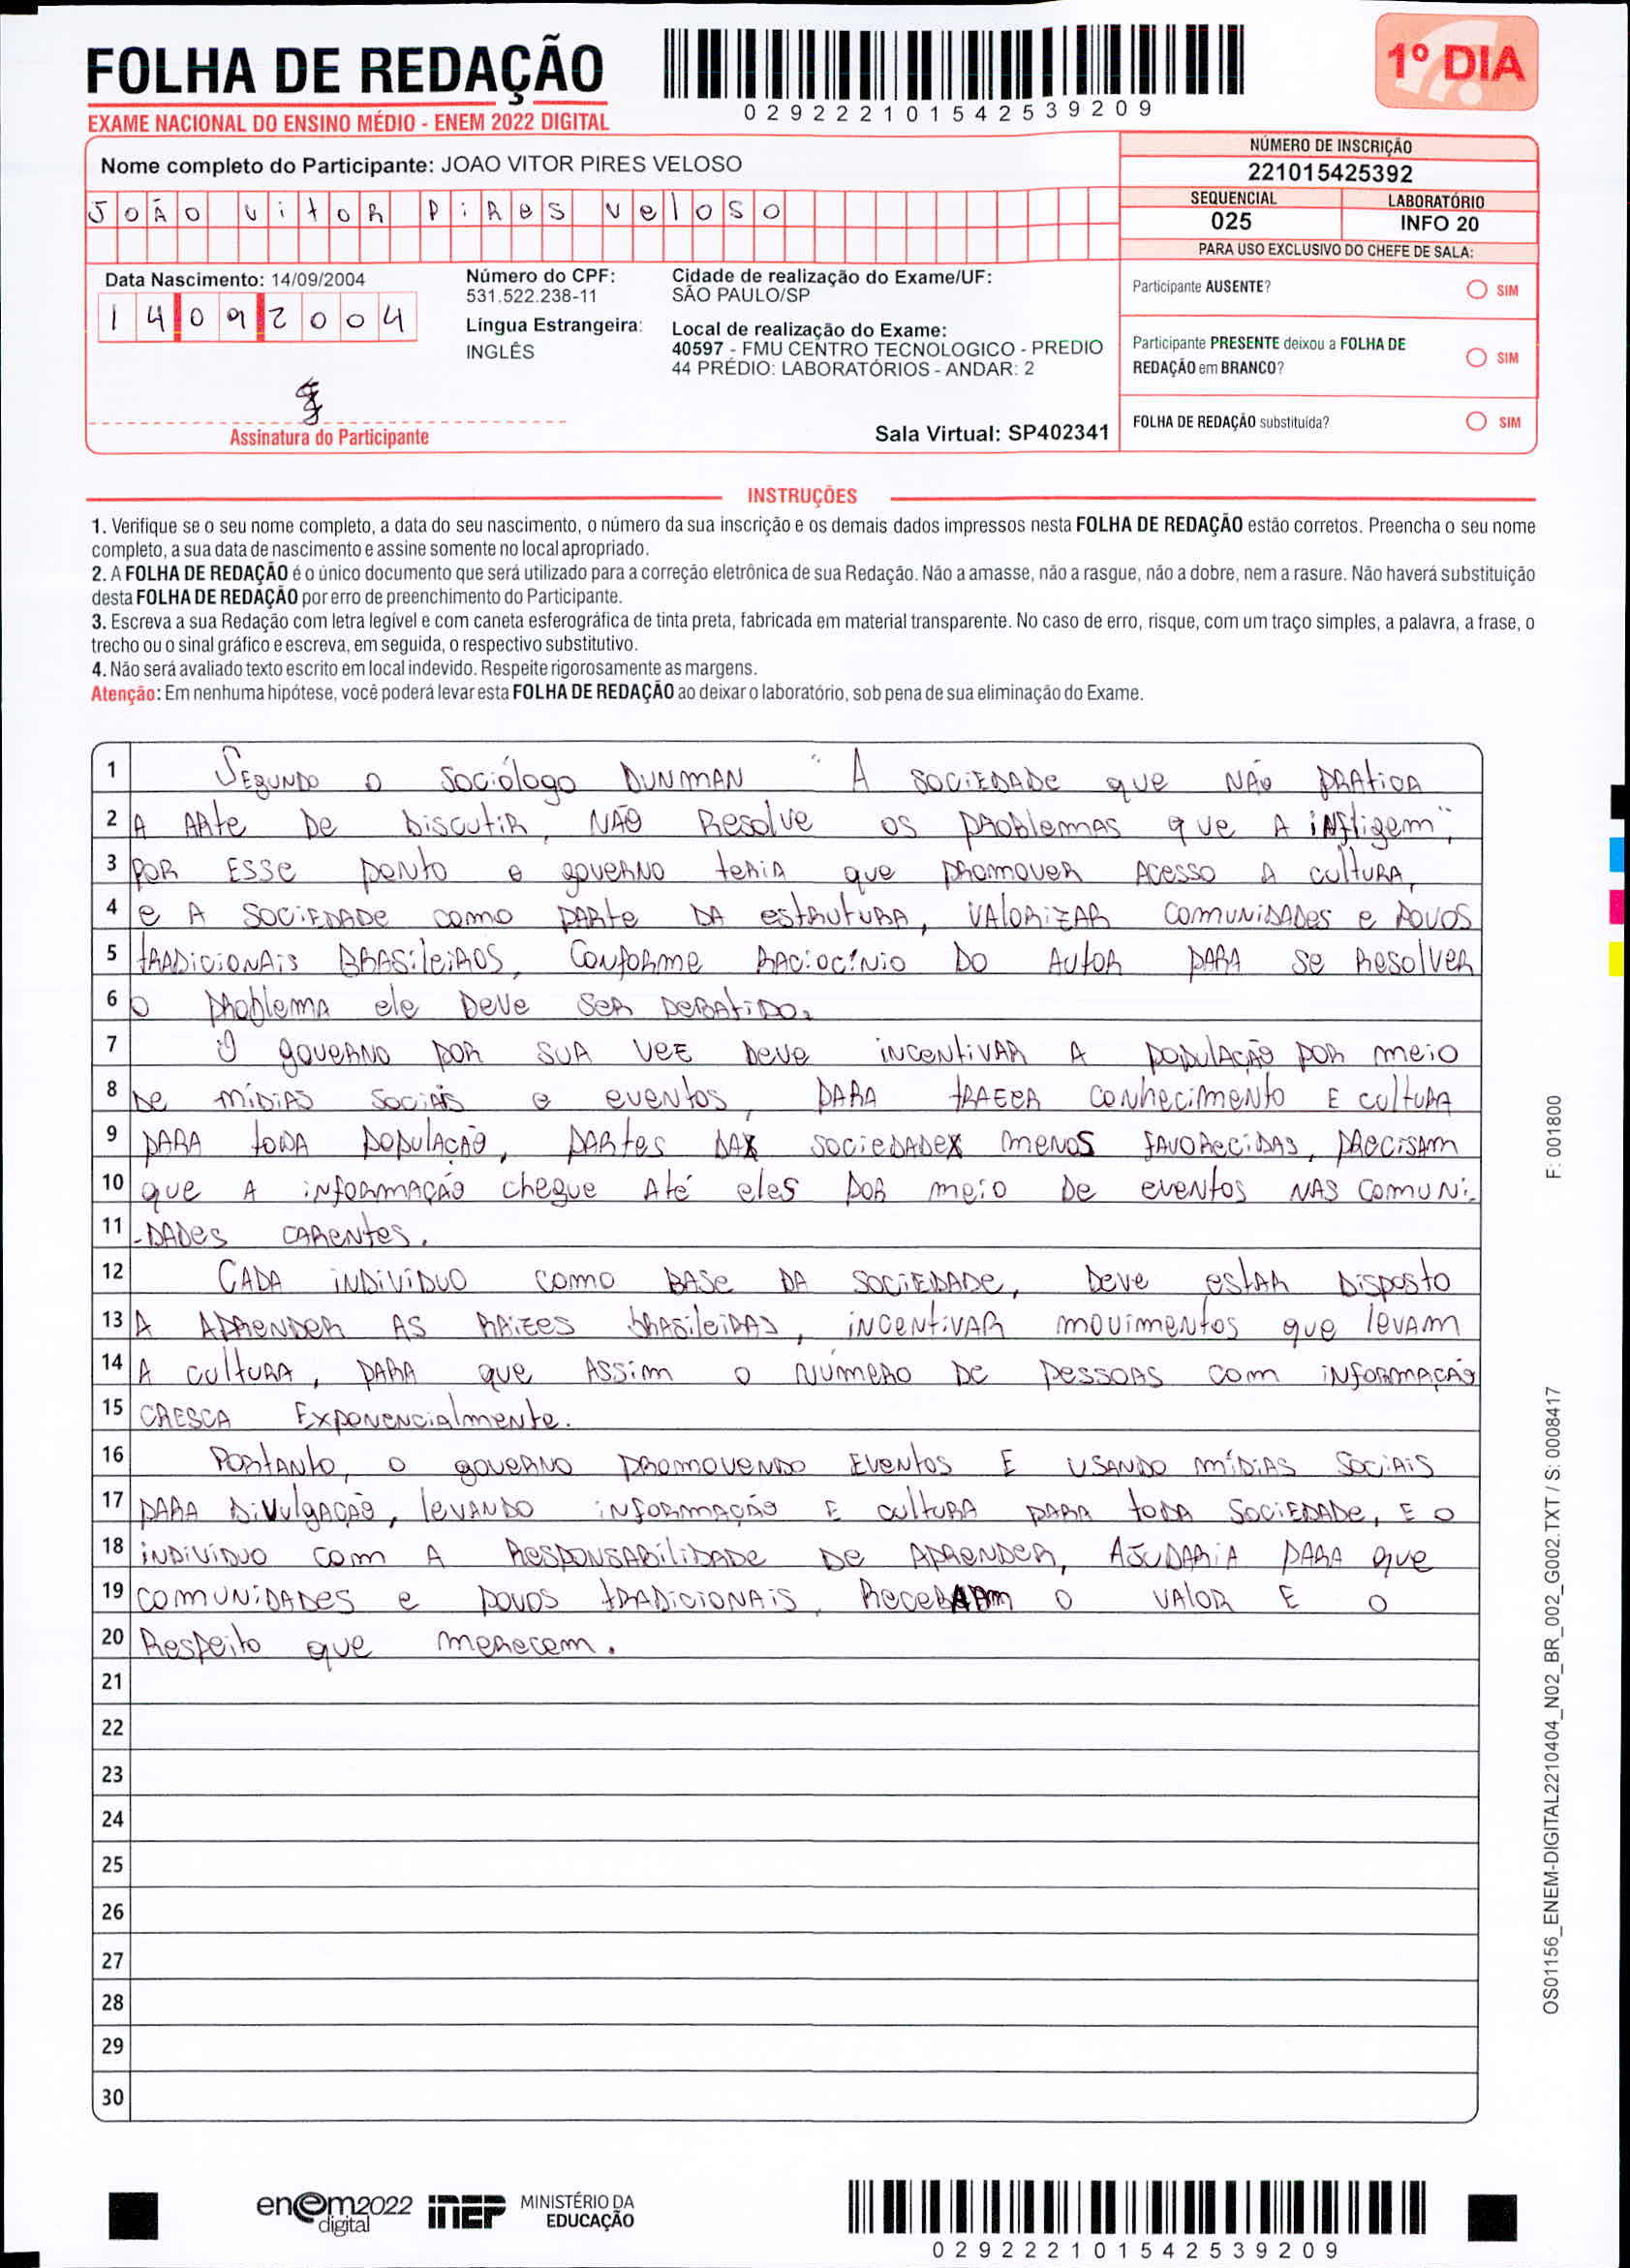 FOLHA DE REDAÇÃO
EXAME NACIONAL DO ENSINO MÉDIO - ENEM 2022 DIGITAL
029222101542539209
1º DIA
Nome completo do Participante: JOAO VITOR PIRES VELOSO
João vitor Pires veloso
NÚMERO DE INSCRIÇÃO
221015425392
SEQUENCIAL
025
LABORATÓRIO
INFO 20
PARA USO EXCLUSIVO DO CHEFE DE SALA:
Data Nascimento: 14/09/2004
14092004
Número do CPF:
531.522.238-11
Língua Estrangeira:
INGLÊS
Cidade de realização do Exame/UF:
SÃO PAULO/SP
Local de realização do Exame:
40597 - FMU CENTRO TECNOLOGICO - PREDIO
44 PRÉDIO: LABORATÓRIOS - ANDAR: 2
Participante AUSENTE?
SIM
Participante PRESENTE deixou a FOLHA DE
REDAÇÃO em BRANCO?
SIM
FOLHA DE REDAÇÃO substituída?
SIM
Assinatura do Participante
Sala Virtual: SP402341
INSTRUÇÕES
1. Verifique se o seu nome completo, a data do seu nascimento, o número da sua inscrição e os demais dados impressos nesta FOLHA DE REDAÇÃO estão corretos. Preencha o seu nome
completo, a sua data de nascimento e assine somente no local apropriado.
2. A FOLHA DE REDAÇÃO é o único documento que será utilizado para a correção eletrônica de sua Redação. Não a amasse, não a rasgue, não a dobre, nem a rasure. Não haverá substituição
desta FOLHA DE REDAÇÃO por erro de preenchimento do Participante.
3. Escreva a sua Redação com letra legível e com caneta esferográfica de tinta preta, fabricada em material transparente. No caso de erro, risque, com um traço simples, a palavra, a frase, o
trecho ou o sinal gráfico e escreva, em seguida, o respectivo substitutivo.
4. Não será avaliado texto escrito em local indevido. Respeite rigorosamente as margens.
Atenção: Em nenhuma hipótese, você poderá levar esta FOLHA DE REDAÇÃO ao deixar o laboratório, sob pena de sua eliminação do Exame.
1 Segundo o sociólogo Dunman "A sociedade que não pratica
2 a arte de discutir, não resolve os problemas que a infligem",
3 por esse ponto o governo teria que promover acesso a cultura,
4 e a sociedade como parte da estrutura, valorizar comunidades e povos
5 tradicionais brasileiros, conforme raciocínio do autor para se resolver
6 o problema ele deve ser debatido.
7 O governo por sua vez deve incentivar a população por meio
8 de mídias sociais e eventos, para trazer conhecimento e cultura
9 para toda população, partes da sociedade menos favorecidas, precisam
10 que a informação chegue até eles por meio de eventos nas comuni-
11 -dades carentes.
12 Cada indivíduo como base da sociedade, deve estar disposto
13 a aprender as raizes brasileiras, incentivar movimentos que levam
14 a cultura, para que assim o número de pessoas com informação
15 cresca exponencialmente.
16 Portanto, o governo promovendo eventos e usando mídias sociais
17 para divulgação, levando informação e cultura para toda sociedade, e o
18 indivíduo com a responsabilidade de aprender, ajudaria para que
19 comunidades e povos tradicionais, recebam o valor e o
20 respeito que merecem.
21
22
23
24
25
26
27
28
29
30
F: 001800
OS01156_ENEM-DIGITAL2210404_N02_BR_002_G002.TXT / S: 0008417
enem2022
digital
inep
MINISTÉRIO DA
EDUCAÇÃO
029222101542539209